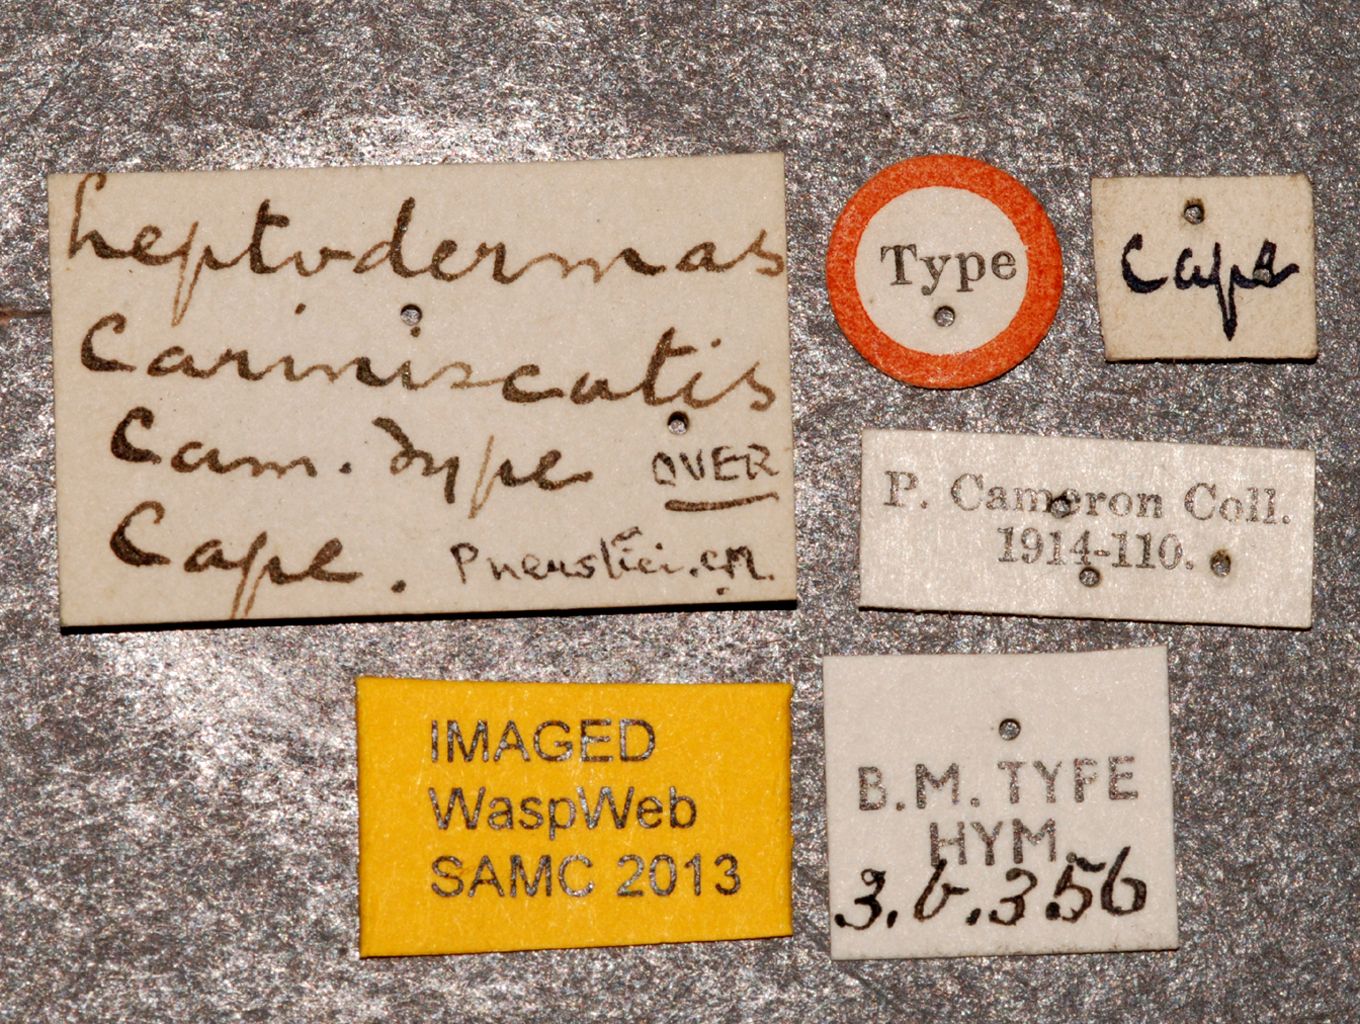 Leptodermas
Cariniscutis
Cam. Type
OVER
Cape.
Type
Cape
P. Cameron Coll.
1914-110.
IMAGED
WaspWeb
SAMC 2013
B.M. TYPE
HYM.
3.b.356